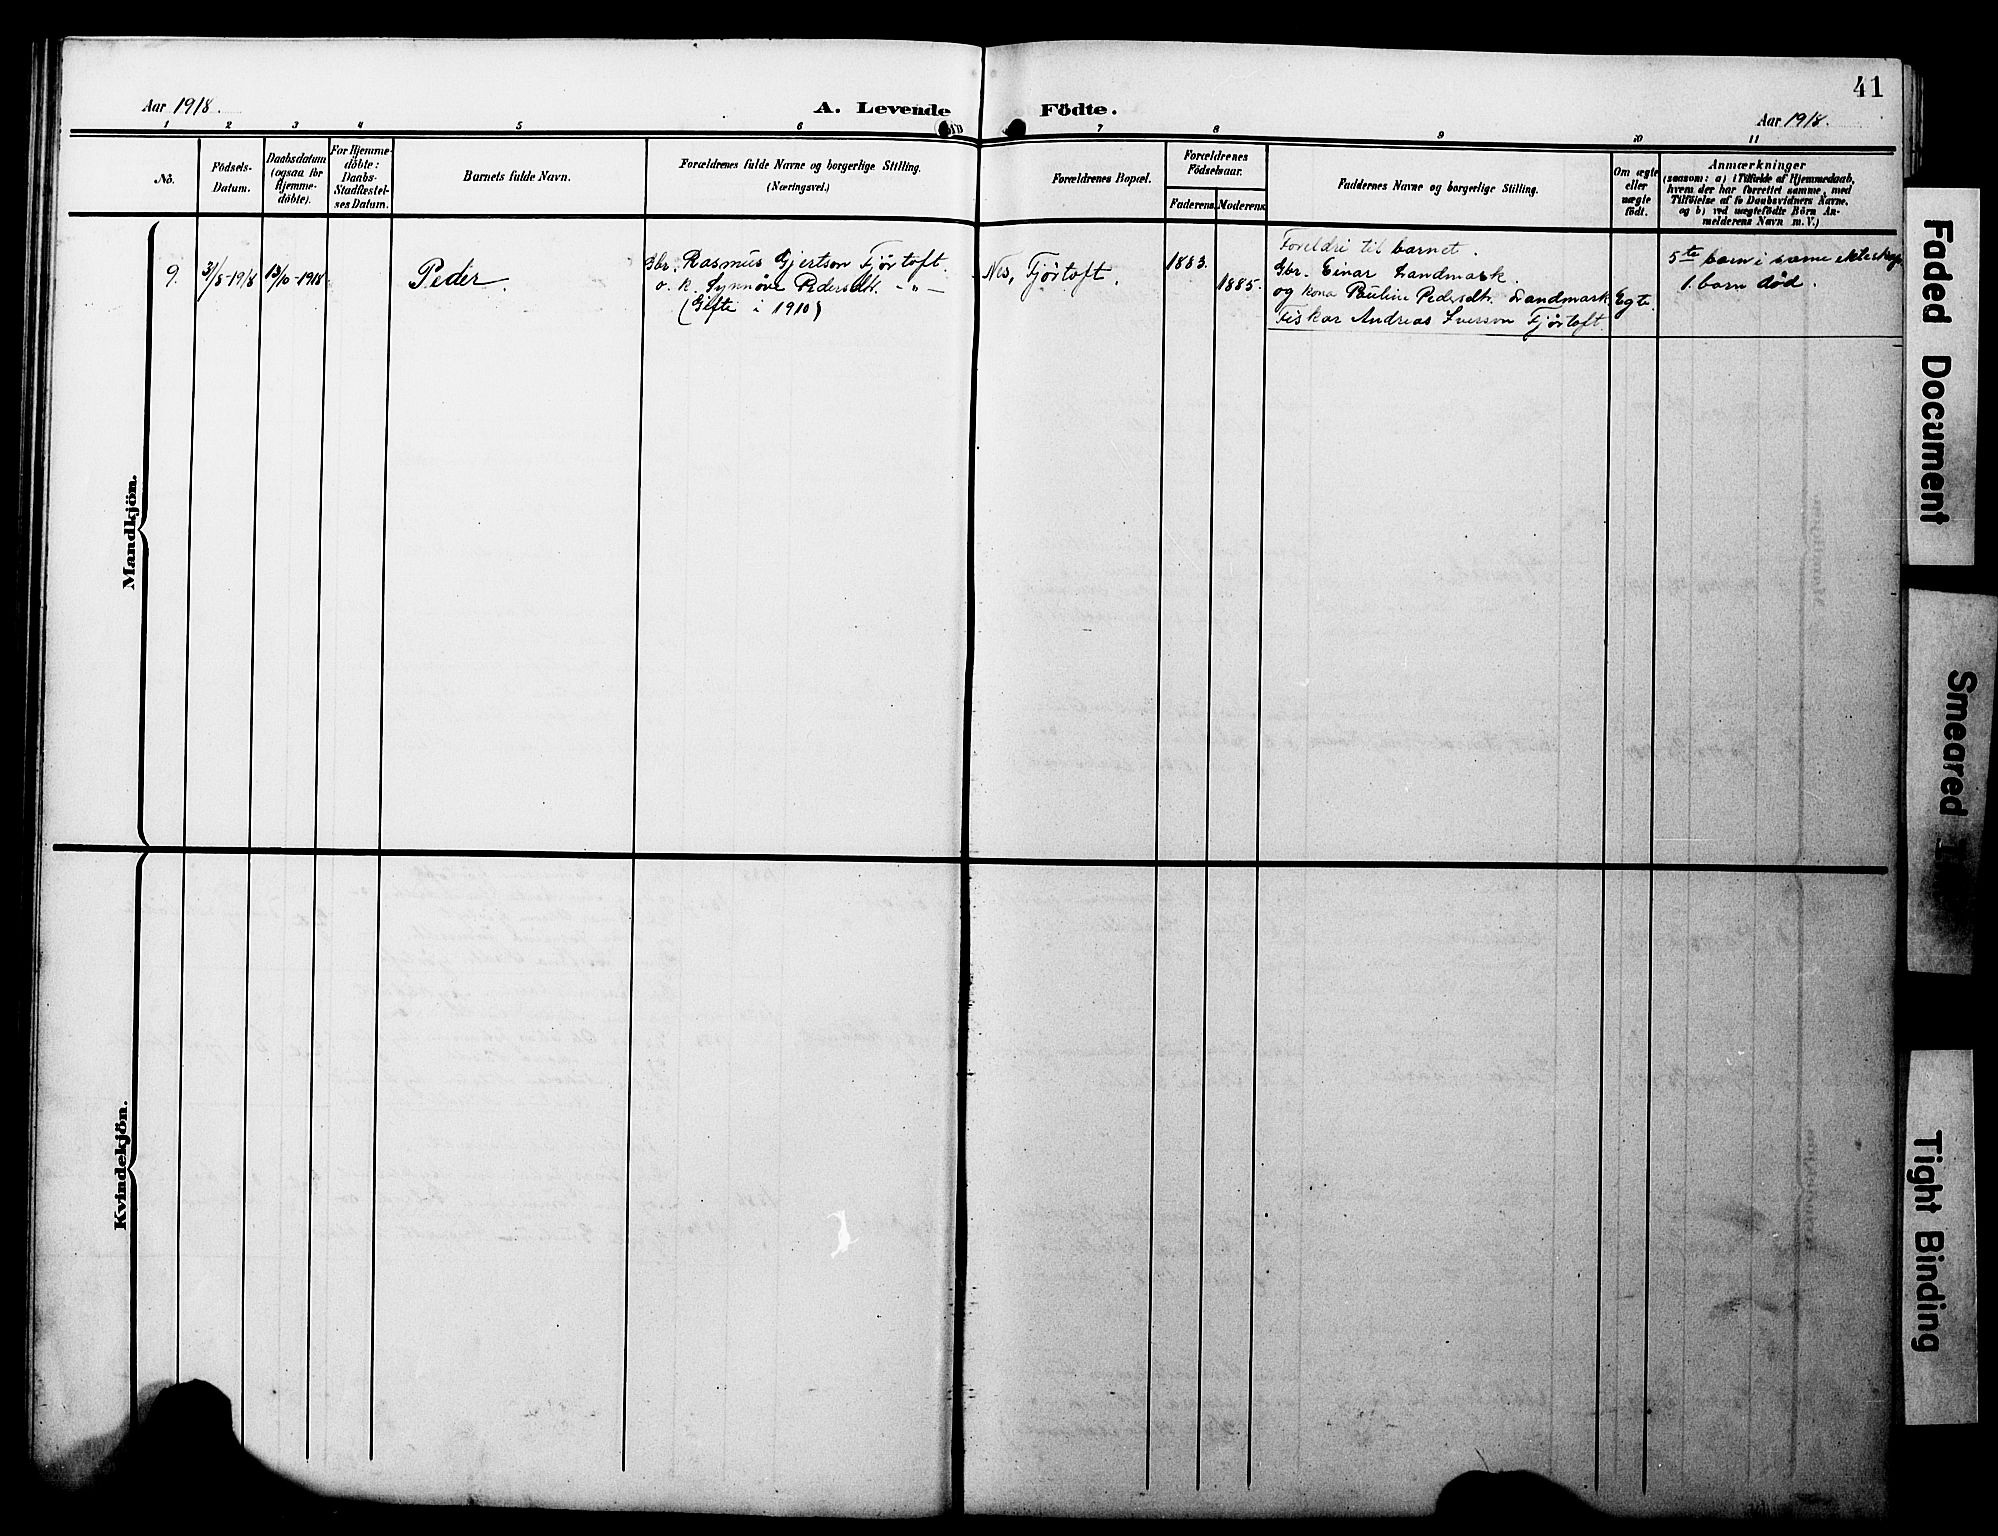 41
Aar 1918.
A. Levende
Födte.
Aar 1918.
1 2 3 4 5 6 7 8 9 10 11
No.
Födsels-
Datum.
Daabsdatum
(ogsaa for
Hjemme-
döbte).
For Hjemme-
döbte:
Daabs-
Stadfæstel-
ses Datum.
Barnets fulde Navn.
Forældrenes fulde Navne og borgerlige Stilling.
(Næringsvei.)
Forældrenes Bopæl.
Forældrenes
Födselsaar.
Faderens.
Moderens.
Faddernes Navne og borgerlige Stilling.
Om ægte
eller
uægte
født.
Anmærkninger
(saasom: a) i Tilfælde af Hjemmedaab,
hvem der har forrettet samme, med
Tilföielse af to Daabsvidners Navne.
og b) ved uægtefödte Börn An-
melderens Navn m. V.)
Mandkjön.
9.
3/8-1918
13/10-1918
Peder.
Gbr. Rasmus Gjertson Fjørtoft.
o. k. Synnøve Pedersdtr. -"-
(Gifte i 1910)
Nes, Fjørtoft.
1883.
1885.
Foreldri til barnet.
Gbr. Einar Landmark
og kona Pauline Pedersdtr. Landmark
Fiskar Andreas Iverson Fjørtoft.
Egte.
5te barn i same ekteskap
1 barn död.
Kvindekjön.
Faded Document
Smeared
Tight Binding